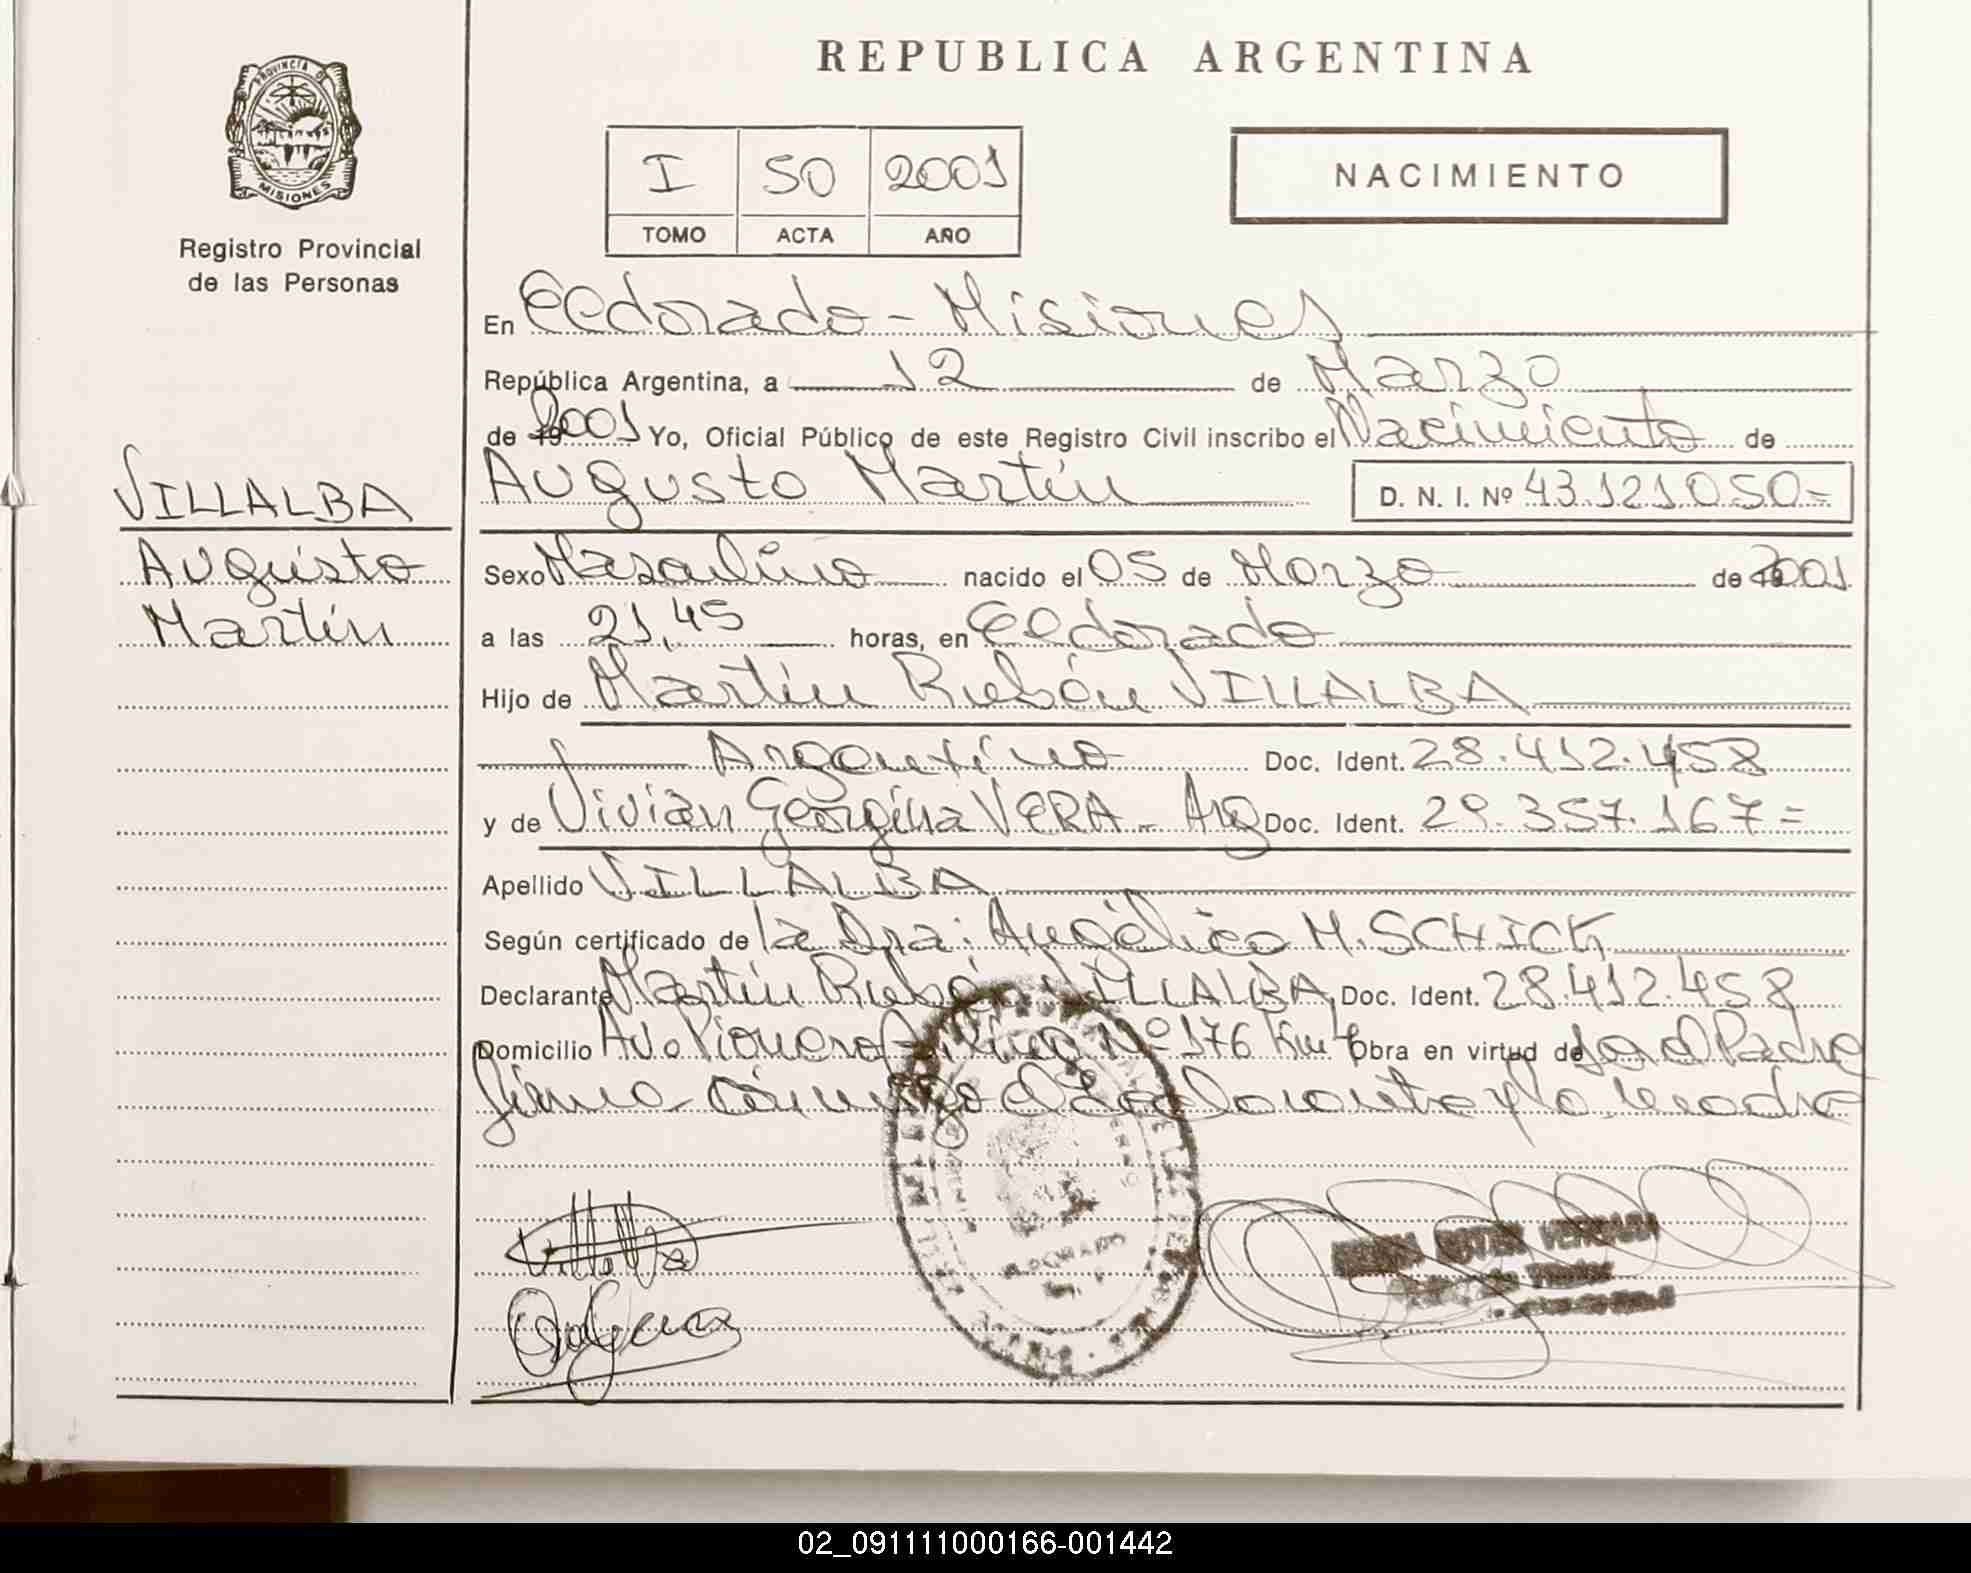 PROVINCIA DE
MISIONES
Registro Provincial
de las Personas
VILLALBA
Augusto
Martín
REPUBLICA ARGENTINA
I 50 2001
TOMO ACTA AÑO
NACIMIENTO
En Eldorado - Misiones
República Argentina, a 12 de Marzo
de 2001 Yo, Oficial Público de este Registro Civil inscribo el Nacimiento de
Augusto Martín D. N. I. Nº 43.121.050=
Sexo Masculino nacido el 05 de Marzo de 2001
a las 21,45 horas, en Eldorado
Hijo de Martín Rubén VILLALBA
Argentino Doc. Ident. 28.412.458
y de Vivian Georgina VERA - Arg Doc. Ident. 29.357.167=
Apellido VILLALBA
Según certificado de la Dra: Angélica M. SCHICK
Declarante Martín Rubén VILLALBA Doc. Ident. 28.412.458
Domicilio Av. Nº 176 Km 4 Obra en virtud de el Padre
firma conmigo el y la madre
ELDORADO
02_091111000166-001442